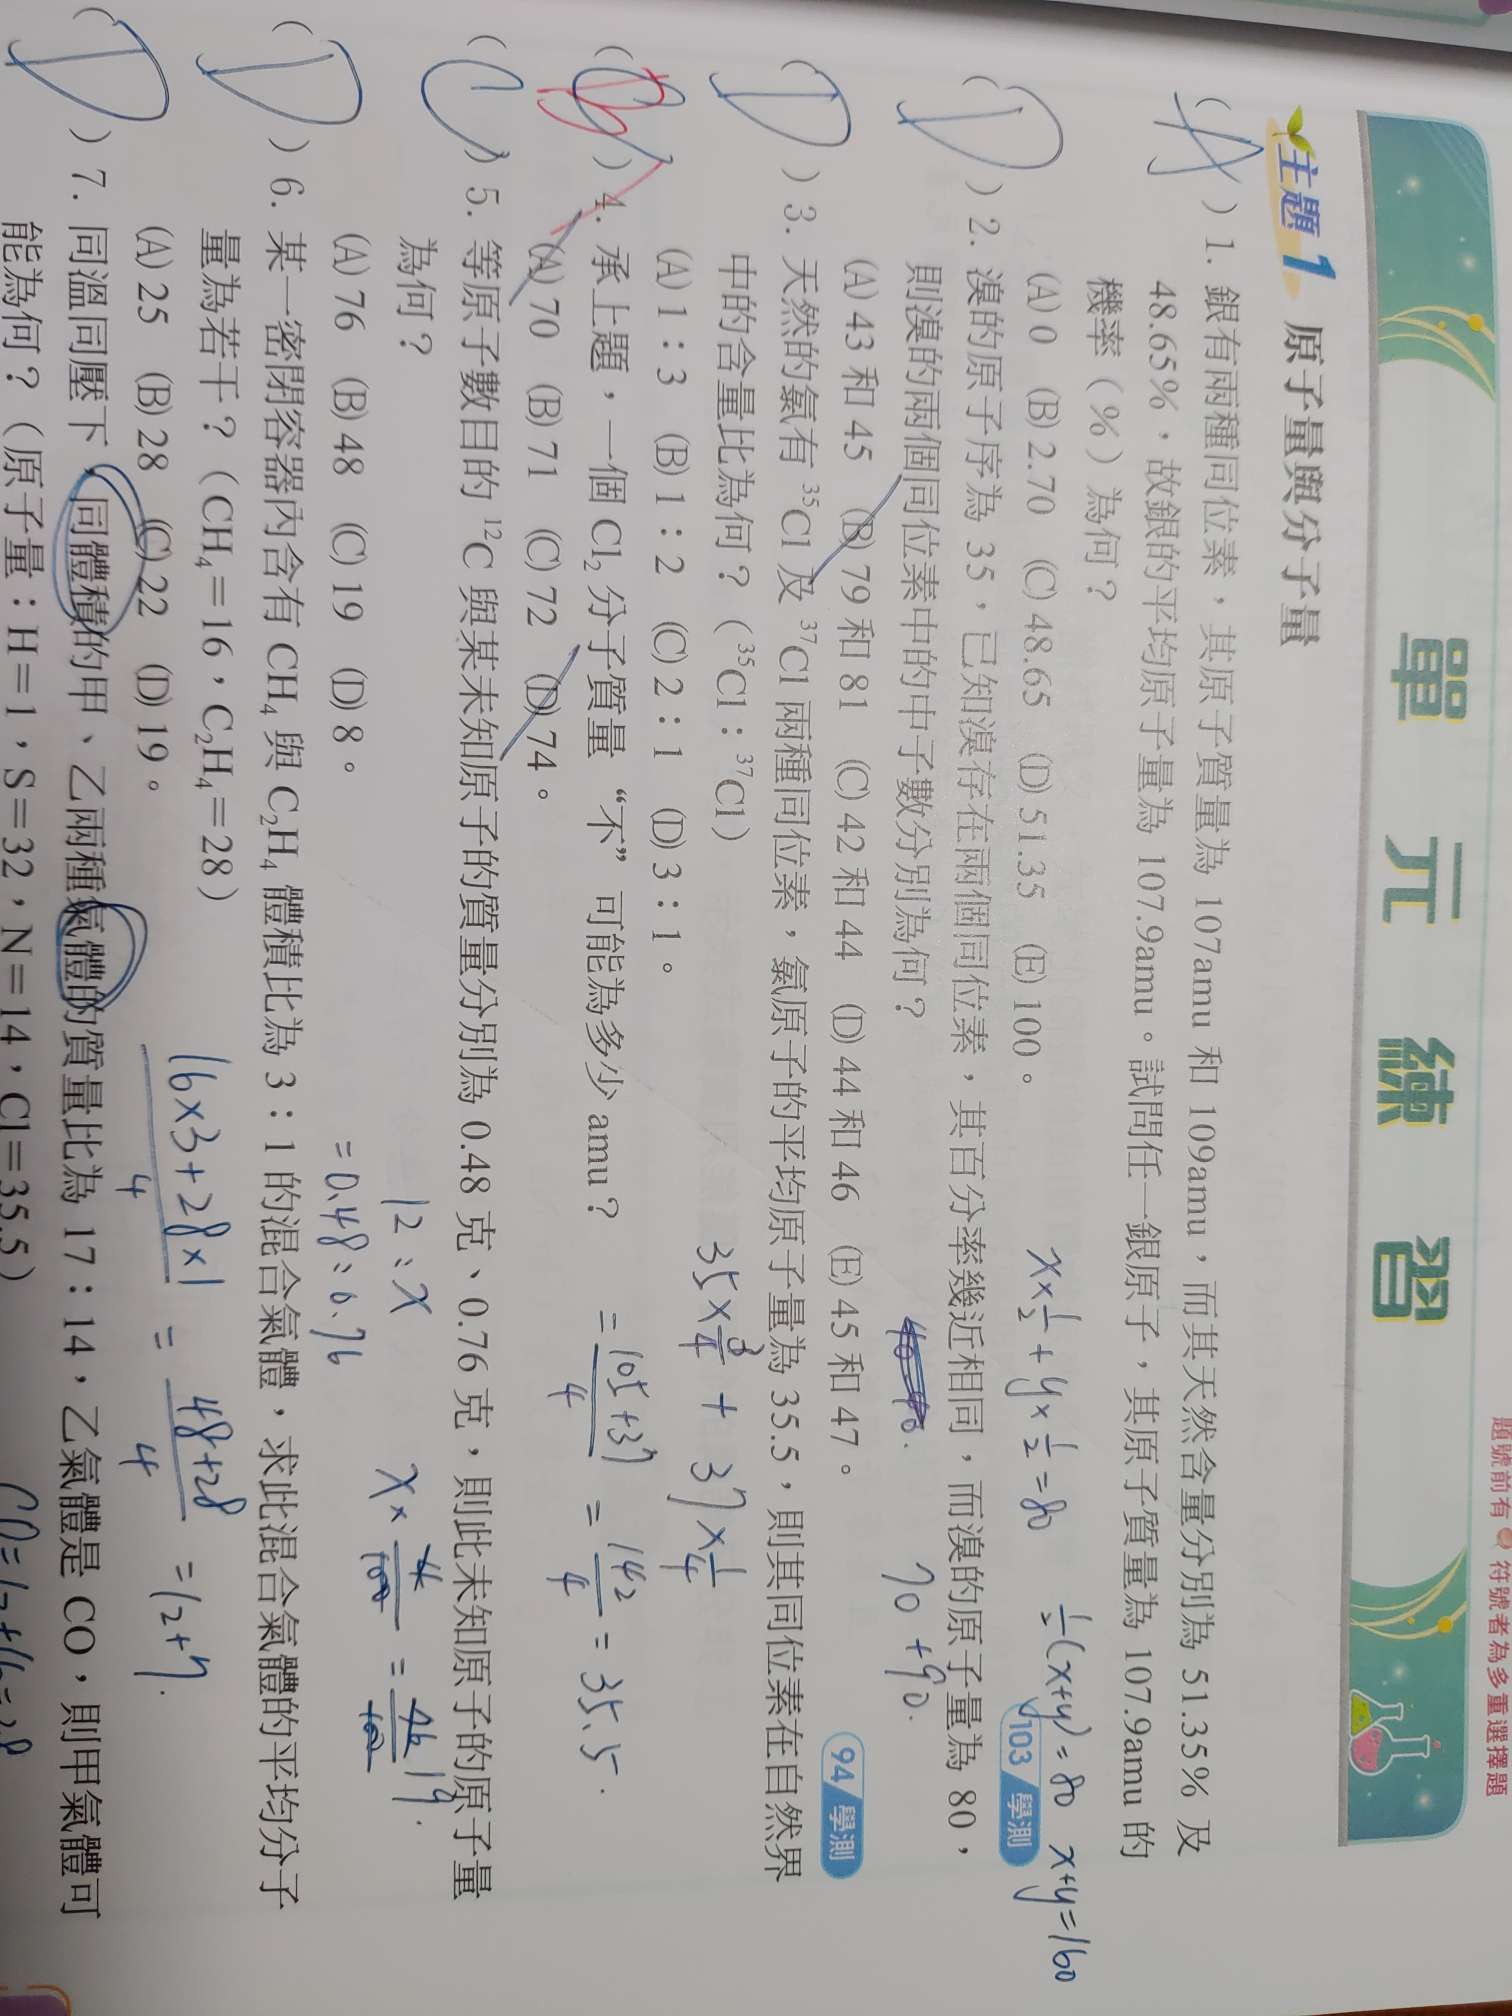 題號前有 符號者為多重選擇題
單元練習
主題1 原子量與分子量
(A) 1. 銀有兩種同位素，其原子質量為 107amu 和 109amu，而其天然含量分別為 51.35% 及
48.65%，故銀的平均原子量為 107.9amu。試問任一銀原子，其原子質量為 107.9amu 的
機率（%）為何？
(A) 0 (B) 2.70 (C) 48.65 (D) 51.35 (E) 100。
103 學測
x×1/2+y×1/2=80
1/2(x+y)=80 x+y=160
(D) 2. 溴的原子序為 35，已知溴存在兩個同位素，其百分率幾近相同，而溴的原子量為 80，
則溴的兩個同位素中的中子數分別為何？
70+90.
(A) 43 和 45 (B) 79 和 81 (C) 42 和 44 (D) 44 和 46 (E) 45 和 47。
94 學測
(D) 3. 天然的氯有 ³⁵Cl 及 ³⁷Cl 兩種同位素，氯原子的平均原子量為 35.5，則其同位素在自然界
中的含量比為何？（³⁵Cl：³⁷Cl）
(A) 1：3 (B) 1：2 (C) 2：1 (D) 3：1。
35×3/4+37×1/4
=(105+37)/4=142/4=35.5.
(B) 4. 承上題，一個 Cl₂ 分子質量“不”可能為多少 amu？
(A) 70 (B) 71 (C) 72 (D) 74。
(C) 5. 等原子數目的 ¹²C 與某未知原子的質量分別為 0.48 克、0.76 克，則此未知原子的原子量
為何？
(A) 76 (B) 48 (C) 19 (D) 8。
12:x
=0.48:0.76
19.
(D) 6. 某一密閉容器內含有 CH₄ 與 C₂H₄ 體積比為 3：1 的混合氣體，求此混合氣體的平均分子
量為若干？（CH₄＝16，C₂H₄＝28）
(A) 25 (B) 28 (C) 22 (D) 19。
(16×3+28×1)/4=(48+28)/4=12+7.
(D) 7. 同溫同壓下，同體積的甲、乙兩種氣體的質量比為 17：14，乙氣體是 CO，則甲氣體可
能為何？（原子量：H＝1，S＝32，N＝14，Cl＝35.5）
CO=12+16=28